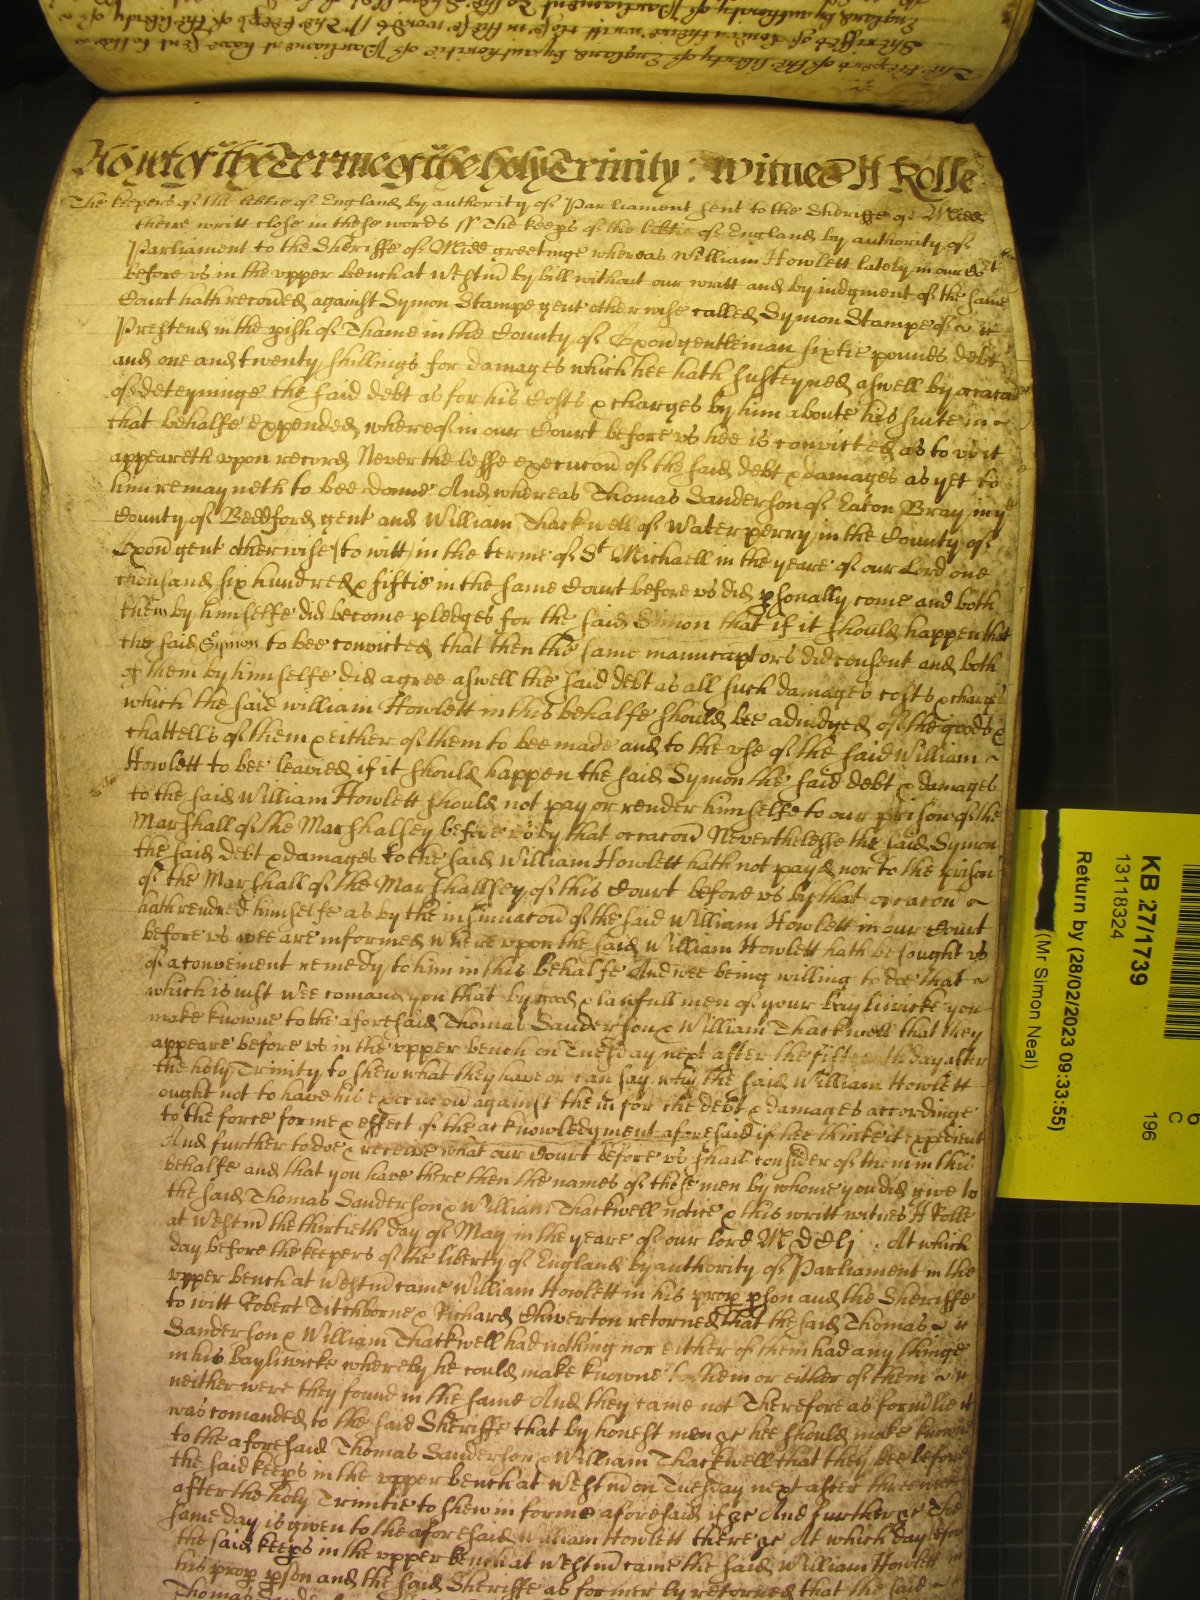 The keepers of the liberty of England by authoritie of Parliament have sent to the
Sheriffes of London theire writt close in these words ss The keeps of the liberty of
England by authority of Parliament To the
As yet of the Terme of the holy Trinity: Witnes H Rolle
The keepers of the libtie of England by authority of Parliament sent to the Sheriffe of Midd
theire writt close in these words ss The keeps of the libtie of England by authority of
Parliament to the Sheriffe of Midd greetinge whereas William Howlett lately in our Cort
before vs in the vpper bench at Westm by bill without our writt and by iudgment of the same
Court hath recoued against Symon Stampe gent otherwise called Symon Stampe of
Prestend in the pish of Thame in the County of Oxon gentleman sixtie pounds debt
and one and twenty shillings for damages which hee hath susteyned aswell by occacon
of deteyninge the said debt as for his Costs & charges by him aboute his suite in
that behalfe expended whereof in our Court before vs hee is convicted as to vs it
appeareth vpon record Neverthelesse execucon of the said debt & damages as yet to
him remayneth to bee donne And whereas Thomas Sanderson of Eaton Bray in ye
County of Beddford gent and William Thackwell of Waterperry in the County of
Oxon gent otherwise (to witt) in the terme of St Michaell in the yeare of our Lord one
thousand six hundred & fiftie in the same Court before vs did psonally come and both
them by himselfe did become pledges for the said Simon that if it should happen that
the said Symon to bee convicted that then the same manucaptors did consent and both
of them by himselfe did agree aswell the said debt as all such damages costs & charges
which the said william Howlett in this behalfe should bee adiudged of the goods &
chattells of them & either of them to bee made and to the vse of the said William
Howlett to bee leavied if it should happen the said Symon the said debt & damages
to the said William Howlett should not pay or render himselfe to our prison of the
Marshall of the Marshalsey before vs by that occacon Neverthelesse the said Symon
the said debt & damages to the said William Howlett hath not payd nor to the prison
of the Marshall of the Marshallsey of this Court before vs by that occacon
hath rendred himselfe as by the insinuacon of the said William Howlett in our Court
before vs wee are informed Where vpon the said William Howlett hath besought vs
of a convenient remedy to him in this behalfe And wee being willing to doe that
which is iust wee comand you that by good & lawfull men of your bayliwicke you
make knowne to the aforesaid Thomas Sanderson & William Thackwell that they
appeare before vs in the vpper bench on Tuesday next after the fifteenth day after
the holy Trinity to shew what they have or can say why the said William Howlett
ought not to have his execucon against them for the debt & damages accordinge
to the force forme & effect of the acknowledgment aforesaid if hee thinke it expedient
And further to doe & receive what our Court before vs shall consider of them in this
behalfe and that you have there then the names of these men by whome you did give to
the said Thomas Sanderson & William Thackwell notice & this writt witnes H Rolle
at Westm the thirtieth day of May in the yeare of our Lord MDCLj . At which
day before the keepers of the liberty of England by authority of Parliament in the
vpper bench at Westm came William Howlett in his prop pson and the Sheriffe
to witt Robert Titchborne & Richard Chiverton retorned that the said Thomas
Sanderson & William Thackwell had nothing nor either of them had any thinge
in his bayliwicke whereby he could make knowne to them or either of them
neither were they found in the same And they came not Therefore as formlie it
was comanded to the said Sheriffe that by honest men &c hee should make knowne
to the aforesaid Thomas Sanderson & William Thackwell that they bee before
the said keeps in the vpper bench at Westm on Tuesday next after three weekes
after the holy Trinitie to shew in forme aforesaid if &c And further &c The
same day is given to the aforesaid William Howlett there &c At which day before
the said keeps in the vpper bench at Westm came the said William Howlett in
his prop pson and the said Sheriffe as formerly retorned that the said
KB 27/1739
13118324
196
C
6
Return by (28/02/2023 09:33:55)
(Mr Simon Neal)